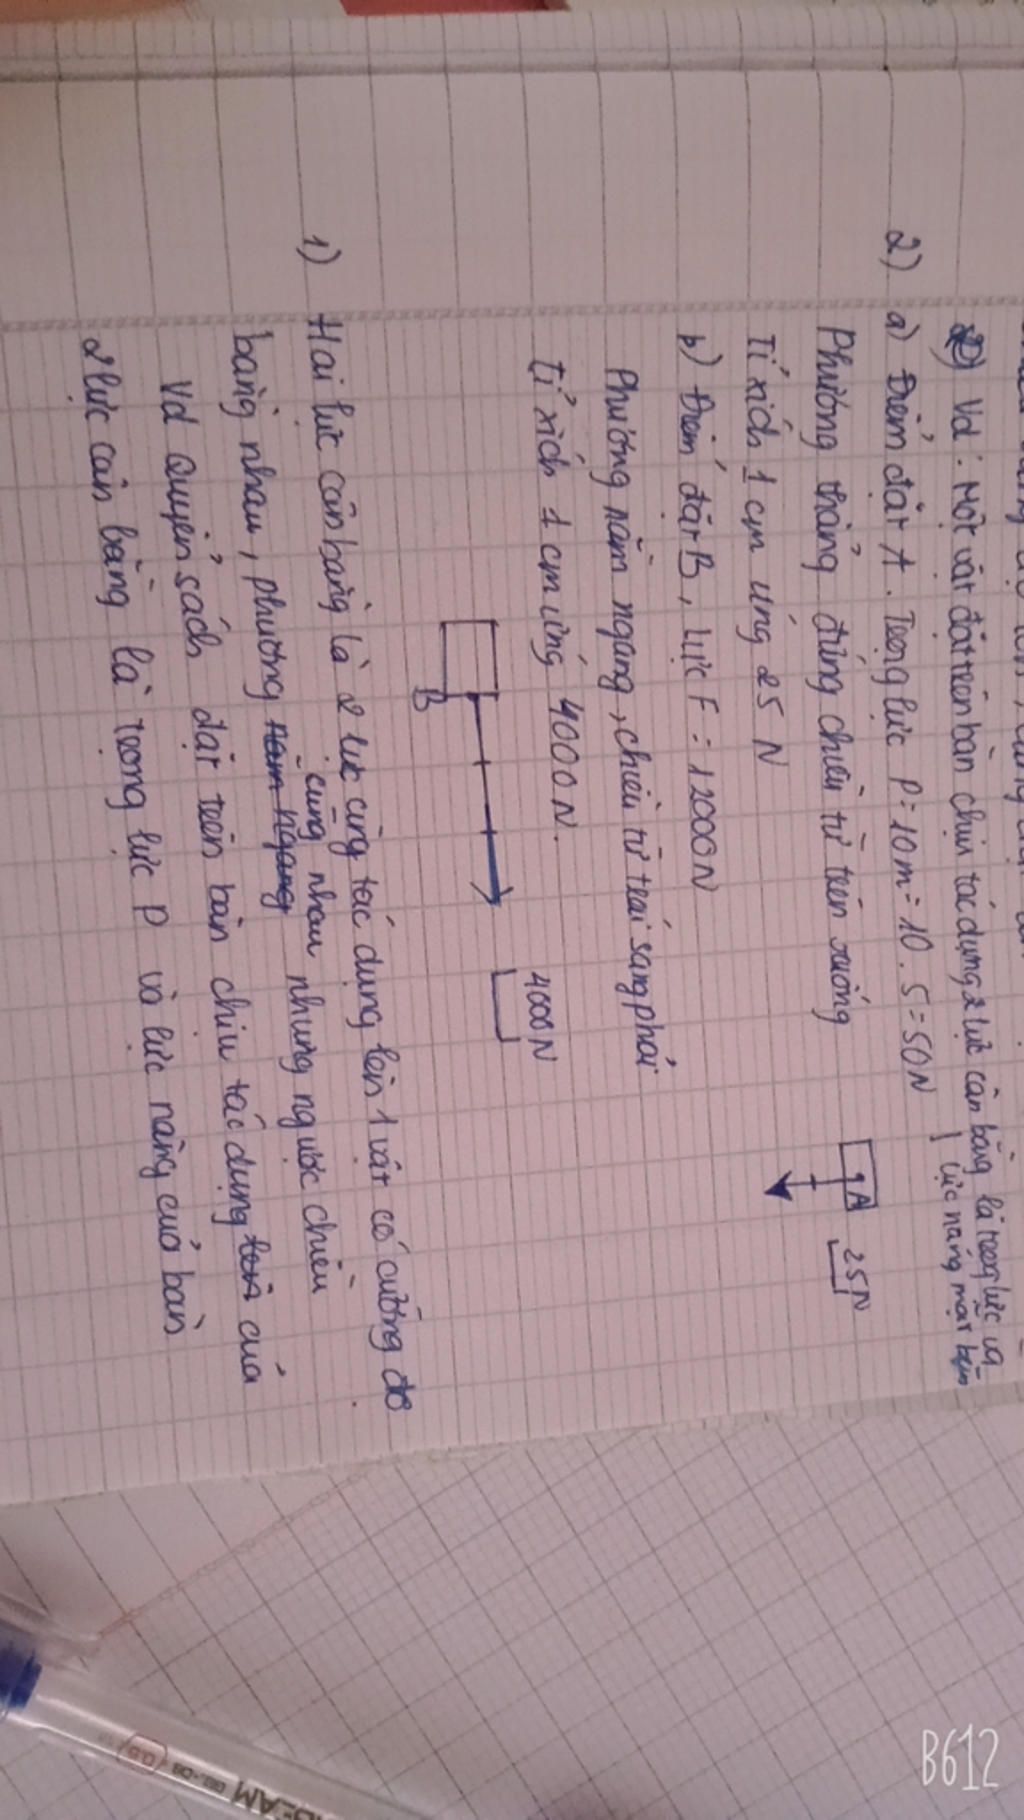 Vd: Một vật đặt trên bàn chịu tác dụng 2 lực cân bằng là trọng lực và
lực nâng mặt bàn
2) a) Điểm đặt A. Trọng lực P = 10m = 10 . 5 = 50N
Phương thẳng đứng chiều từ trên xuống
Tỉ xích 1 cm ứng 25 N
A
25N
b) Điểm đặt B, lực F = 12000N
Phương nằm ngang, chiều từ trái sang phải
Tỉ xích 1 cm ứng 4000 N.
4000N
B
1) Hai lực cân bằng là 2 lực cùng tác dụng lên 1 vật có cường độ
bằng nhau, phương nằm ngang cùng nhau nhưng ngược chiều
Vd quyển sách đặt trên bàn chịu tác dụng của
2 lực cân bằng là trọng lực P và lực nâng của bàn
B612